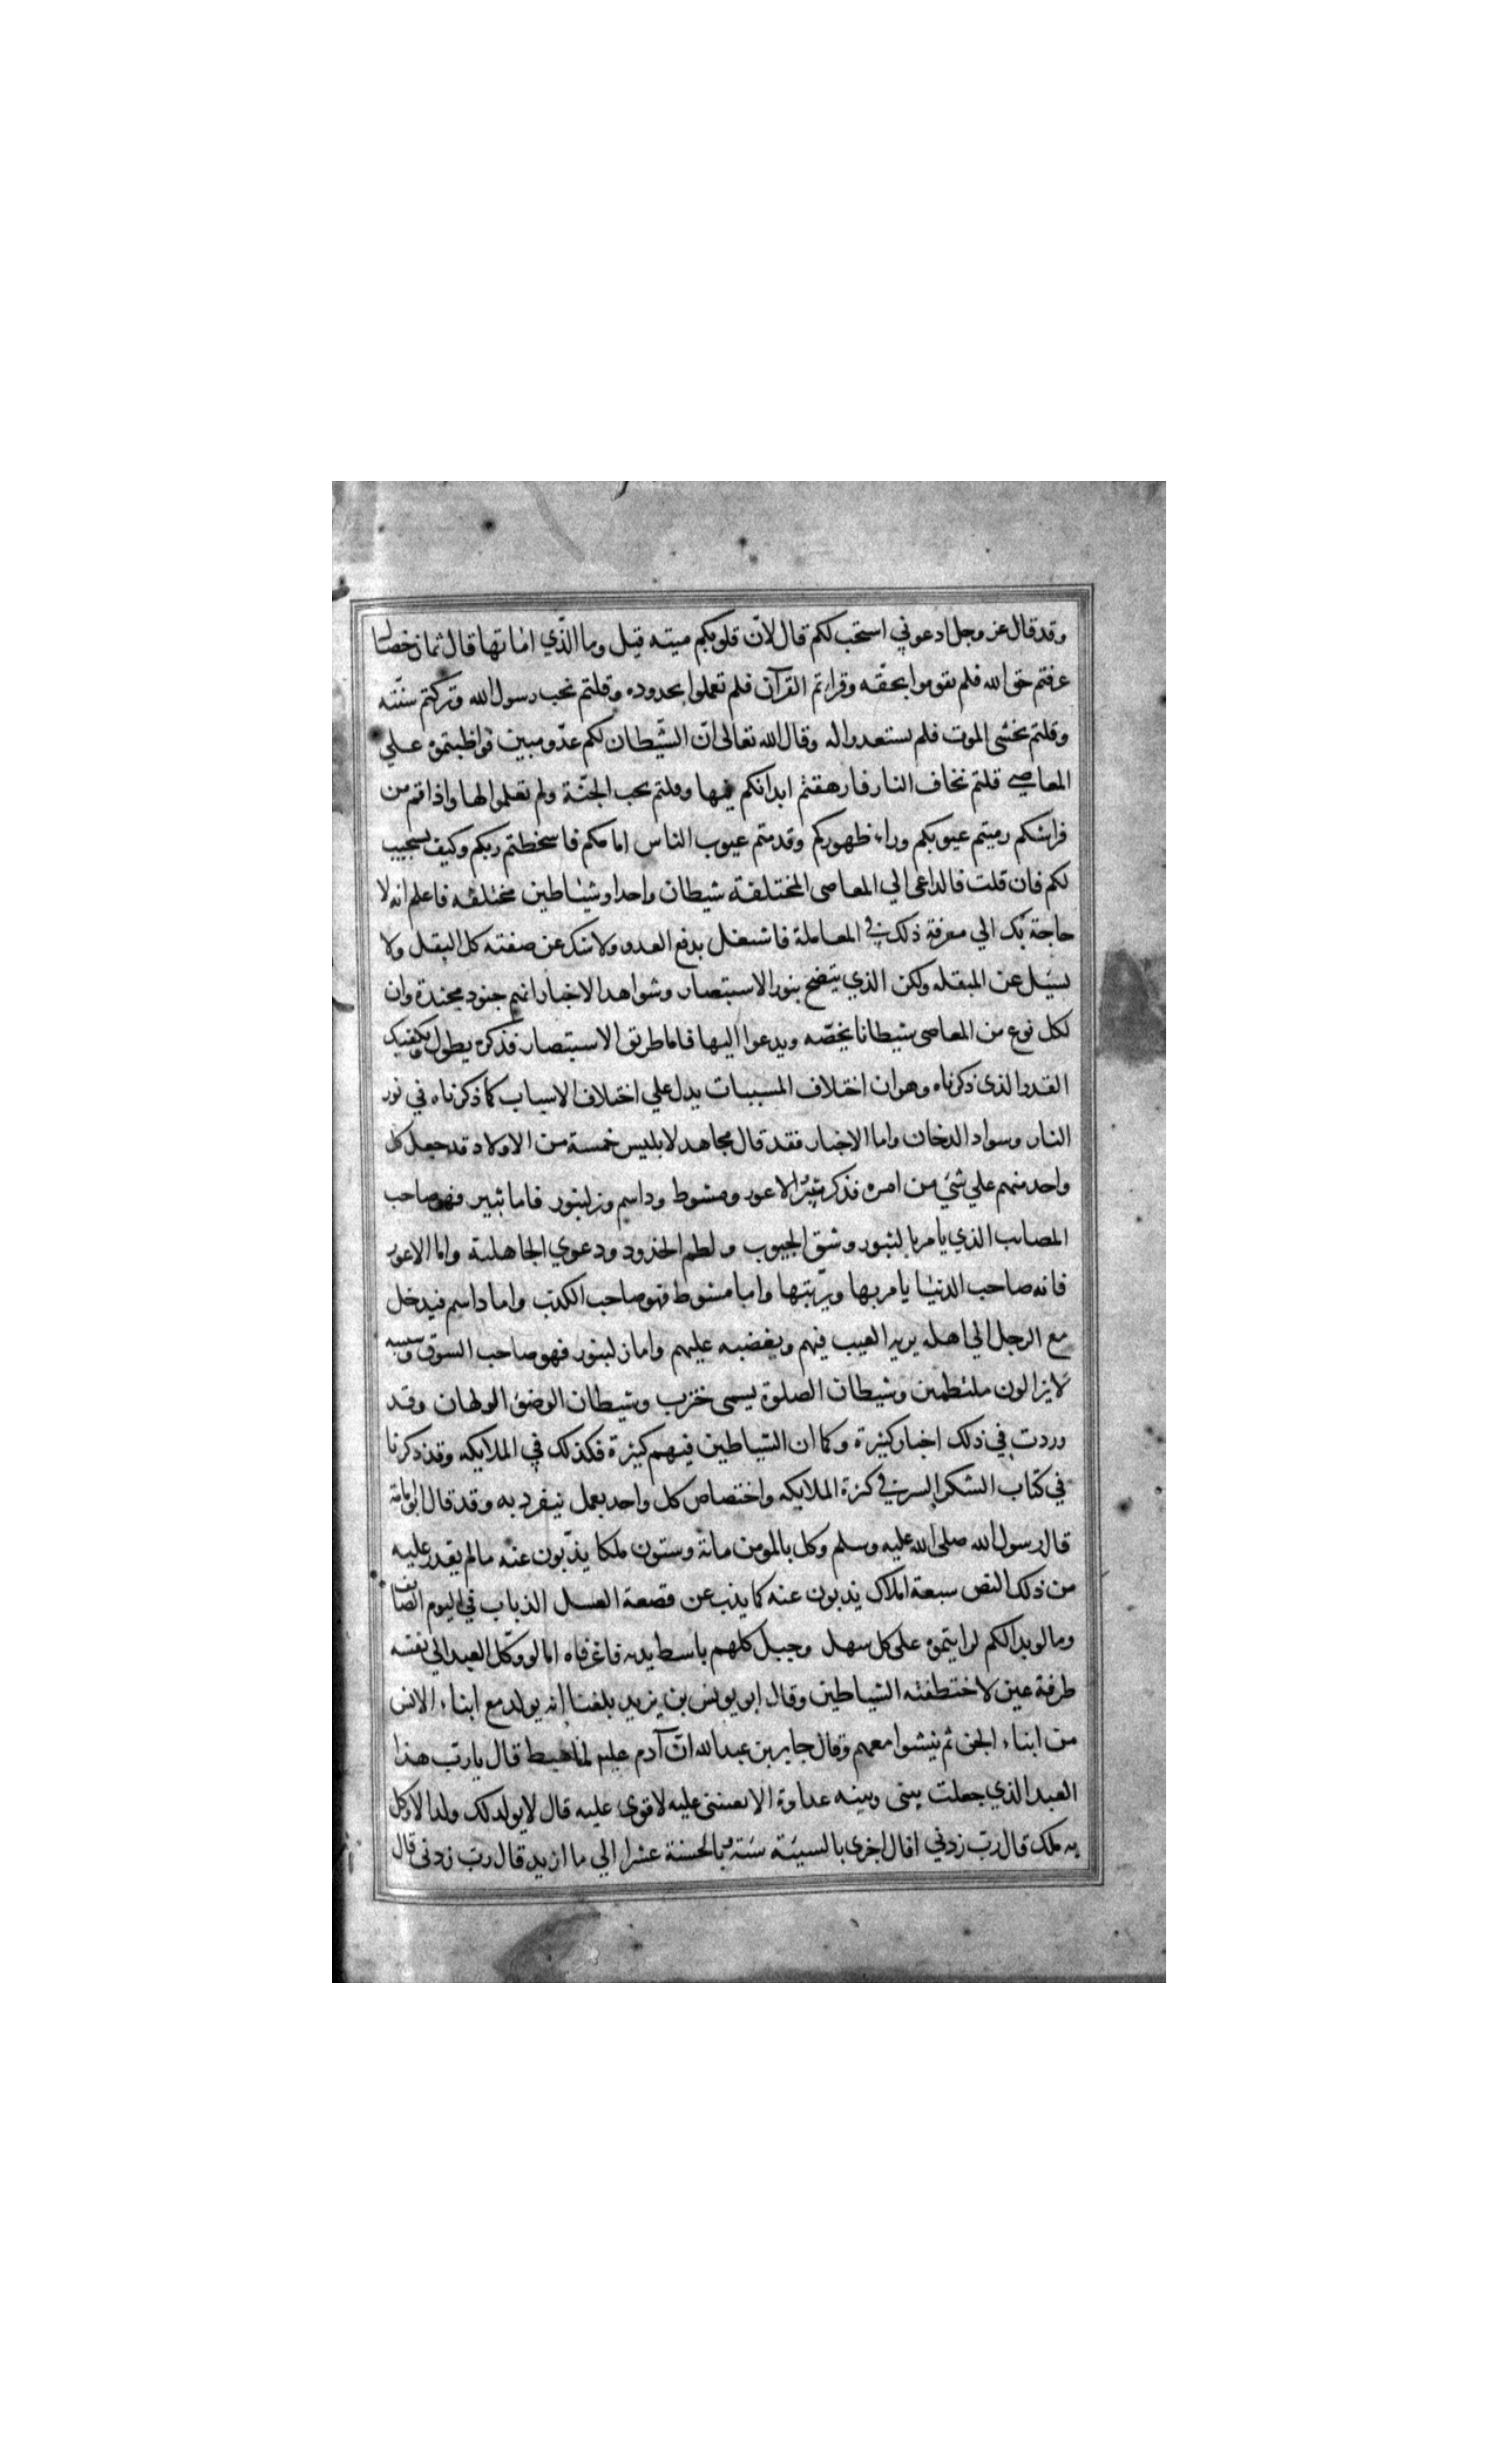 وقد قال عز وجل ادعوني استجب لكم قال لانّ قلوبكم ميته قيل وما الذّي اماتها قال ثمان خصال
عرفتم حق الله فلم تقوموا بحقّه وقراتم القرآن فلم تعملوا بحدوده وقلتم نحب رسول الله وتركتم سنّته
وقلتم نخشى الموت فلم تستعدوا له وقال الله تعالى انّ الشّيطان لكم عدّو مبين فواظبتموه علي
المعاصي قلتم نخاف النار فارهقتم ابدانكم فيها وقلتم نحب الجنّة ولم تعملوا لها واذا قمتم من
فراشكم رميتم عيوبكم وراء ظهوركم وقدمتم عيوب الناس امامكم فاسخطتم ربكم وكيف يستجيب
لكم فان قلت فالداعي الي المعاصي المختلفة شيطان واحد او شيٰاطين مختلفه فاعلم انه لا
حاجة بك الي معرفة ذلك في المعاملة فاشتغل بدفع العدو ولا عن صفته كل البقل ولا
يسئل عن المبقله ولكن الذي يتضح بنور الاستبصار وشواهد الاخبار انهم جنود مجندة وان
لكل نوع من المعاصي شيطانا يخصّه ويدعوا اليها فاما طريق الاستبصار فذكره يطول ويكفيك
القدر الذي ذكرناه وهو ان اختلاف المسببات يدل علي اختلاف الاسباب كما ذكرناه في نور
النار وسواد الدخان واما الاخبار فقد قال مجاهد لابليس خمسة من الاولاد قد جعل كل
واحد منهم علي شئ من امره فذكر ثبر الاعور ومشوط وداسم وزلبنور فاما ثبير فهو صاحب
المصائب الذي يامر بالثبور وشق الجيوب ولطم الخدود ودعوي الجاهلية واما الاعور
فانه صاحب الدنيٰا يامر بها ويزّينها واما مشوط فهو صاحب الكذب واما داسم فيدخل
مع الرجل الي اهله يريه العيب فيهم ويغضبه عليهم واما زلبنور فهو صاحب السوق وبسببه
لايزالون ملتطمين وشيطان الصلوة يسمي خنزب وشيطان الوضؤ الولهان وقد
وردت في ذلك اخبار كثيرة وكما ان الشياطين فيهم كثرة فكذلك في الملايكه وقد ذكرنا
في كتاب الشكر السر في كثرة الملايكه واختصاص كل واحد بعمل ينفرد به وقد قال ابو امامة
قال رسول الله صلي الله عليه وسلم وكل بالمومن مائة وستون ملكا يذّبون عنه مالم يقدر عليه
من ذلك النص سبعة املاك يذبون عنه كما يذب عن قصعة العسل الذباب في اليوم الصايف
ومالو بدا لكم لرايتموه علي كل سهل وجبل كلهم باسط يديه فاغرفاه امالو وكّل العبد الي نفسه
طرفة عين لاختطفته الشياطين وقال ابو يونس بن يزيد بلغنا انه يولد مع ابناء الانس
من ابناء الجن ثم ينشوا معهم وقال جابر بن عبدالله انّ آدم عليم لما هبط قال يا ربّ هذا
العبد الذي جعلت بيني وبينه عداوة الا تعينني عليه لاقوي عليه قال لايولد لك ولد الا وكل
به ملك قال ربّ زدني قال اجزي بالسيئة سئة وبالحسنة عشرا الي ما ازيد قال ربّ زدني قال